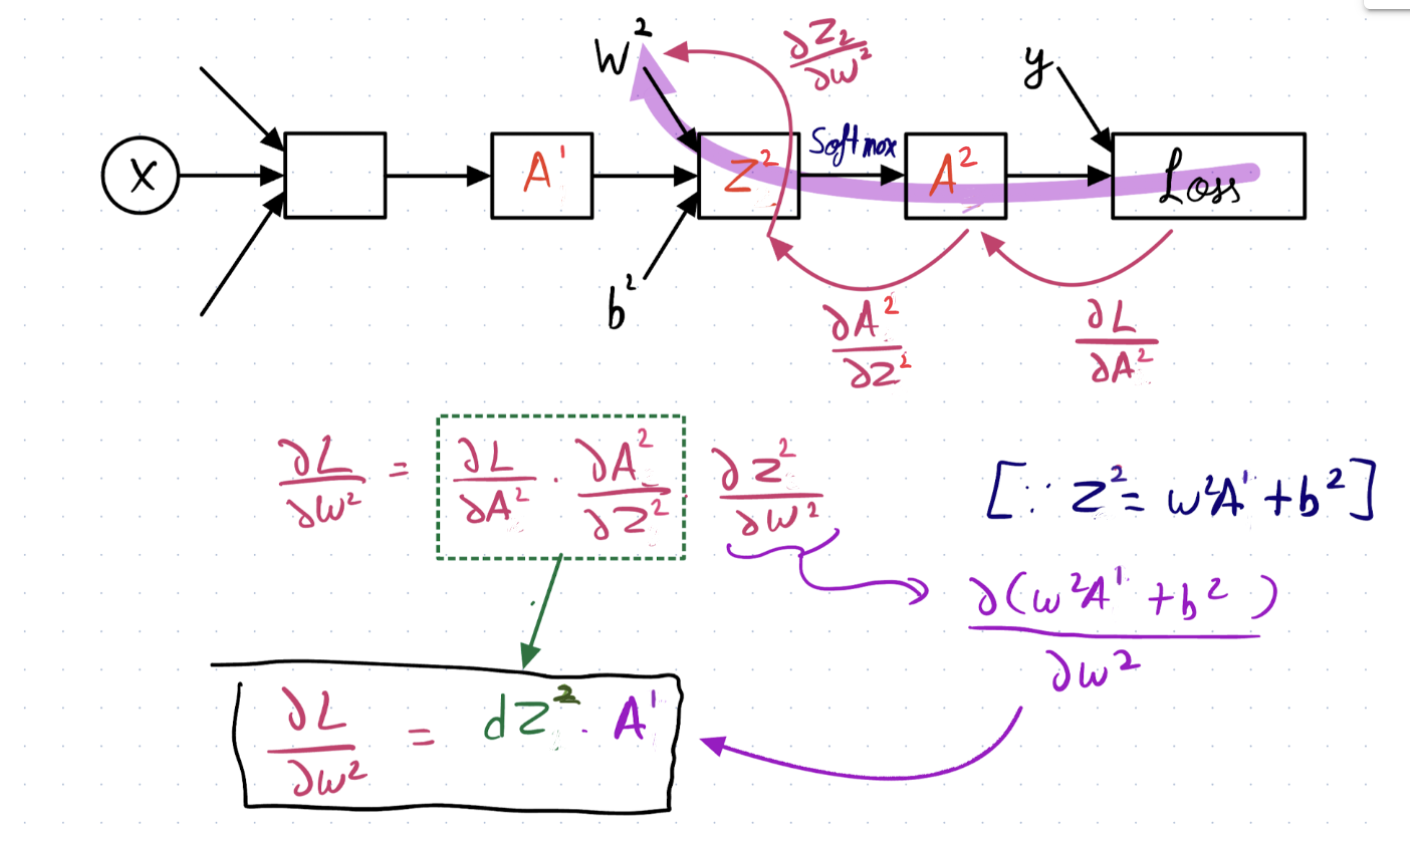 W²
∂Z₂/∂W²
y
X
A¹
Z²
Softmax
A²
Loss
b²
∂A²/∂Z²
∂L/∂A²
∂L/∂W² = ∂L/∂A² · ∂A²/∂Z² · ∂Z²/∂W²
[∵ Z² = W²A¹ + b²]
∂(W²A¹ + b²)/∂W²
∂L/∂W² = dZ² · A¹